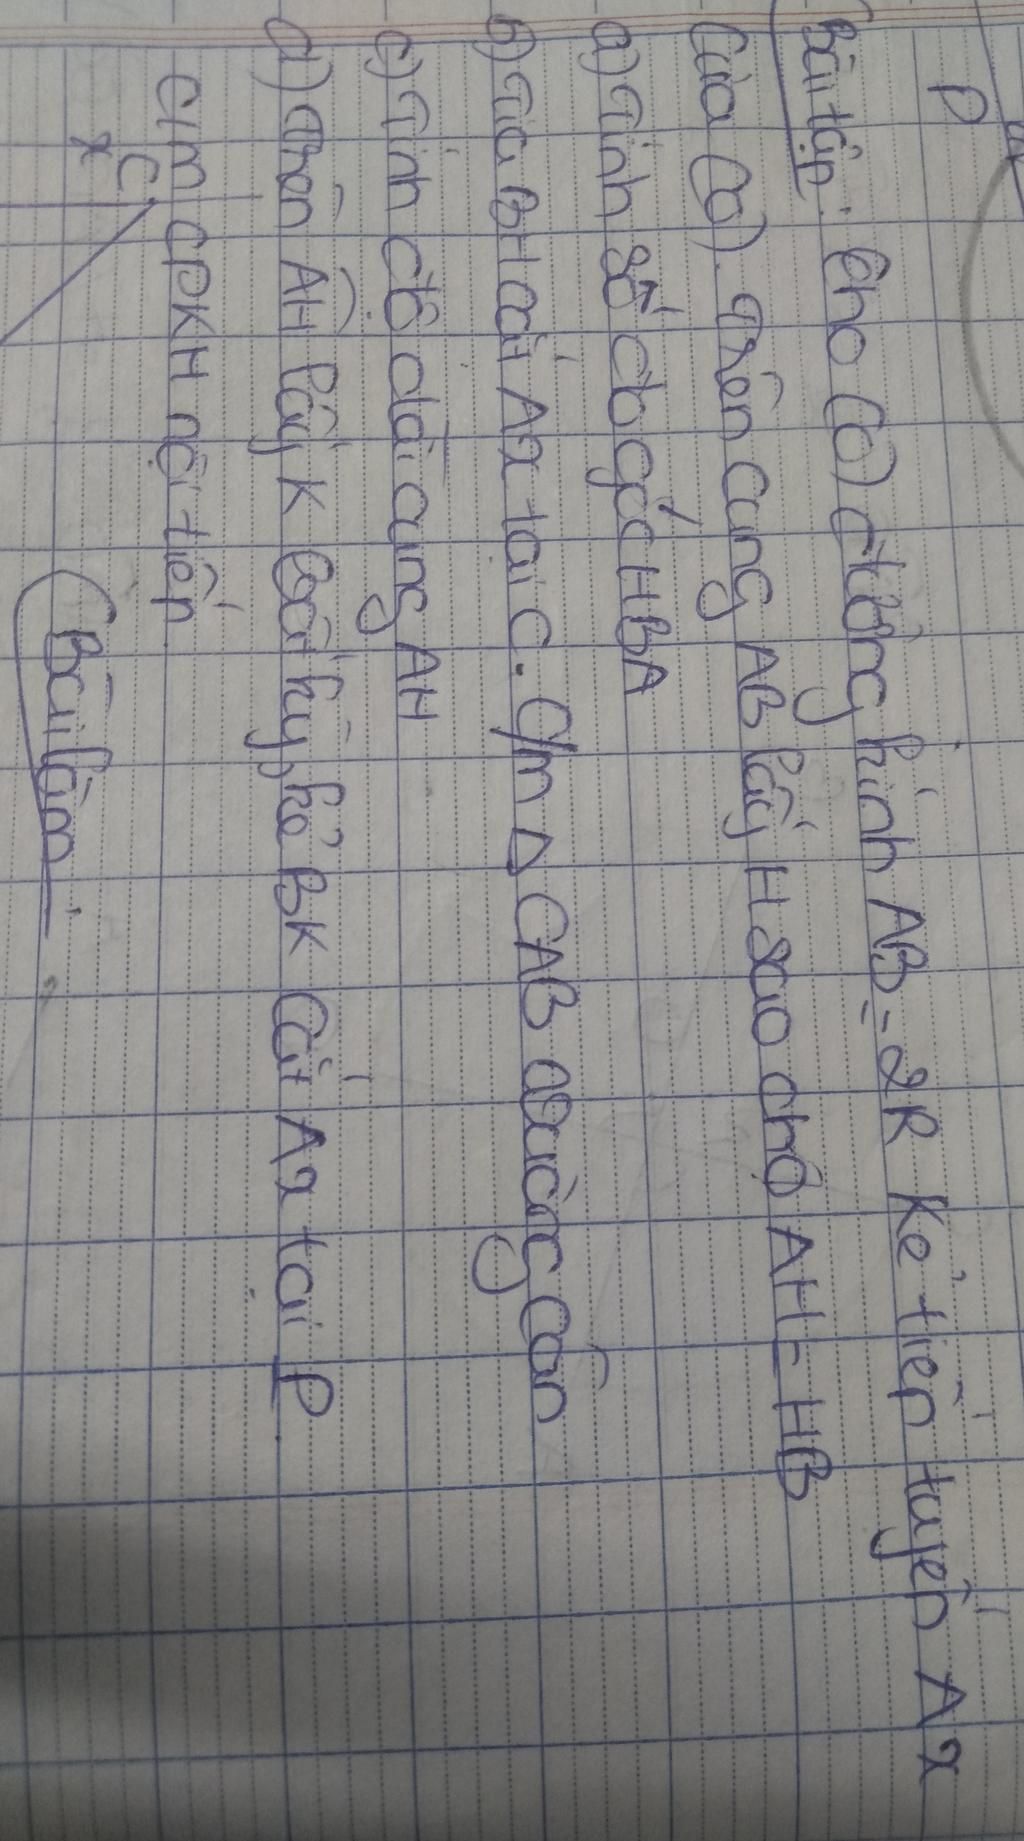 P
Bài tập: Cho (O) đường kính AB = 2R Kẻ tiếp tuyến Ax
Của (O). Trên cung AB lấy H sao cho AH = HB
a) Tính số đo góc HBA
b) Tia BH cắt Ax tại C. C/m Δ CAB vuông cân
c) Tính độ dài cung AH
d) Trên AH lấy K bất kỳ, kẻ BK cắt Ax tại P
C/m CPKH nội tiếp
Bài làm
C
x